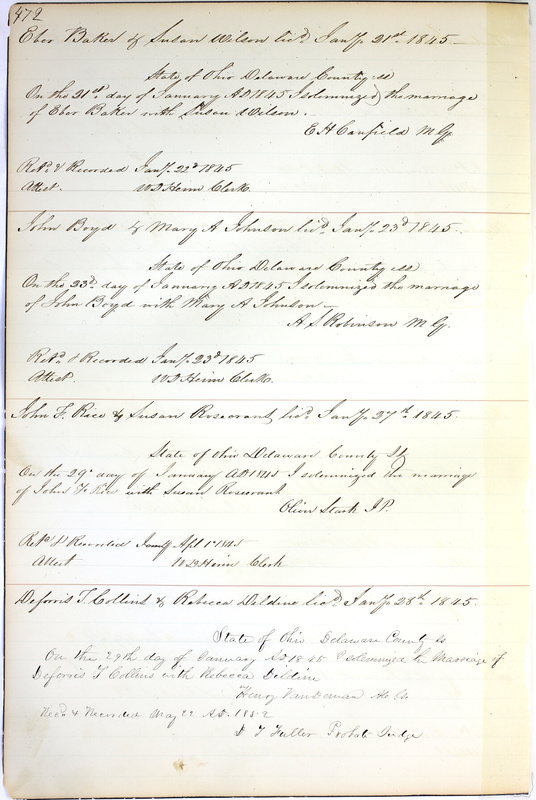 472
Eber Baker & Susan Wilson lic'd Jan'y 21st 1845
State of Ohio Delaware County ss
On the 21st day of January AD 1845 I solemnized the marriage
of Eber Baker with Susan Wilson.
E H Canfield M G
Ret'd & Recorded Jan'y 22d 1845
Attest. W D Heim Clerk
John Boyd & Mary A Johnson lic'd Jan'y 23d 1845.
State of Ohio Delaware County ss
On the 23d day of January AD 1845 I solemnized the marriage
of John Boyd with Mary A Johnson
A S Robinson M G.
Ret'd & Recorded Jan'y 23d 1845
Attest. W D Heim Clerk
John F. Rice & Susan Rosecrant lic'd Jan'y 27th 1845.
State of Ohio Delaware County Ss
On the 29 day of January AD 1845 I solemnized the marriage
of John F Rice with Susan Rosecrant
Oliver Stark J P.
Ret'd & Recorded Apl 1 1845
Attest W D Heim Clerk
Deforris T. Collins & Rebecca Deldine lic'd Jan'y 28th 1845.
State of Ohio Delaware County ss
On the 29th day of January AD 1845 I solemnized the Marriage of
Deforris T Collins with Rebecca Deldine
Henry Vandeman
Rec'd & Recorded May 22 AD. 1852
T Fuller Probate Judge